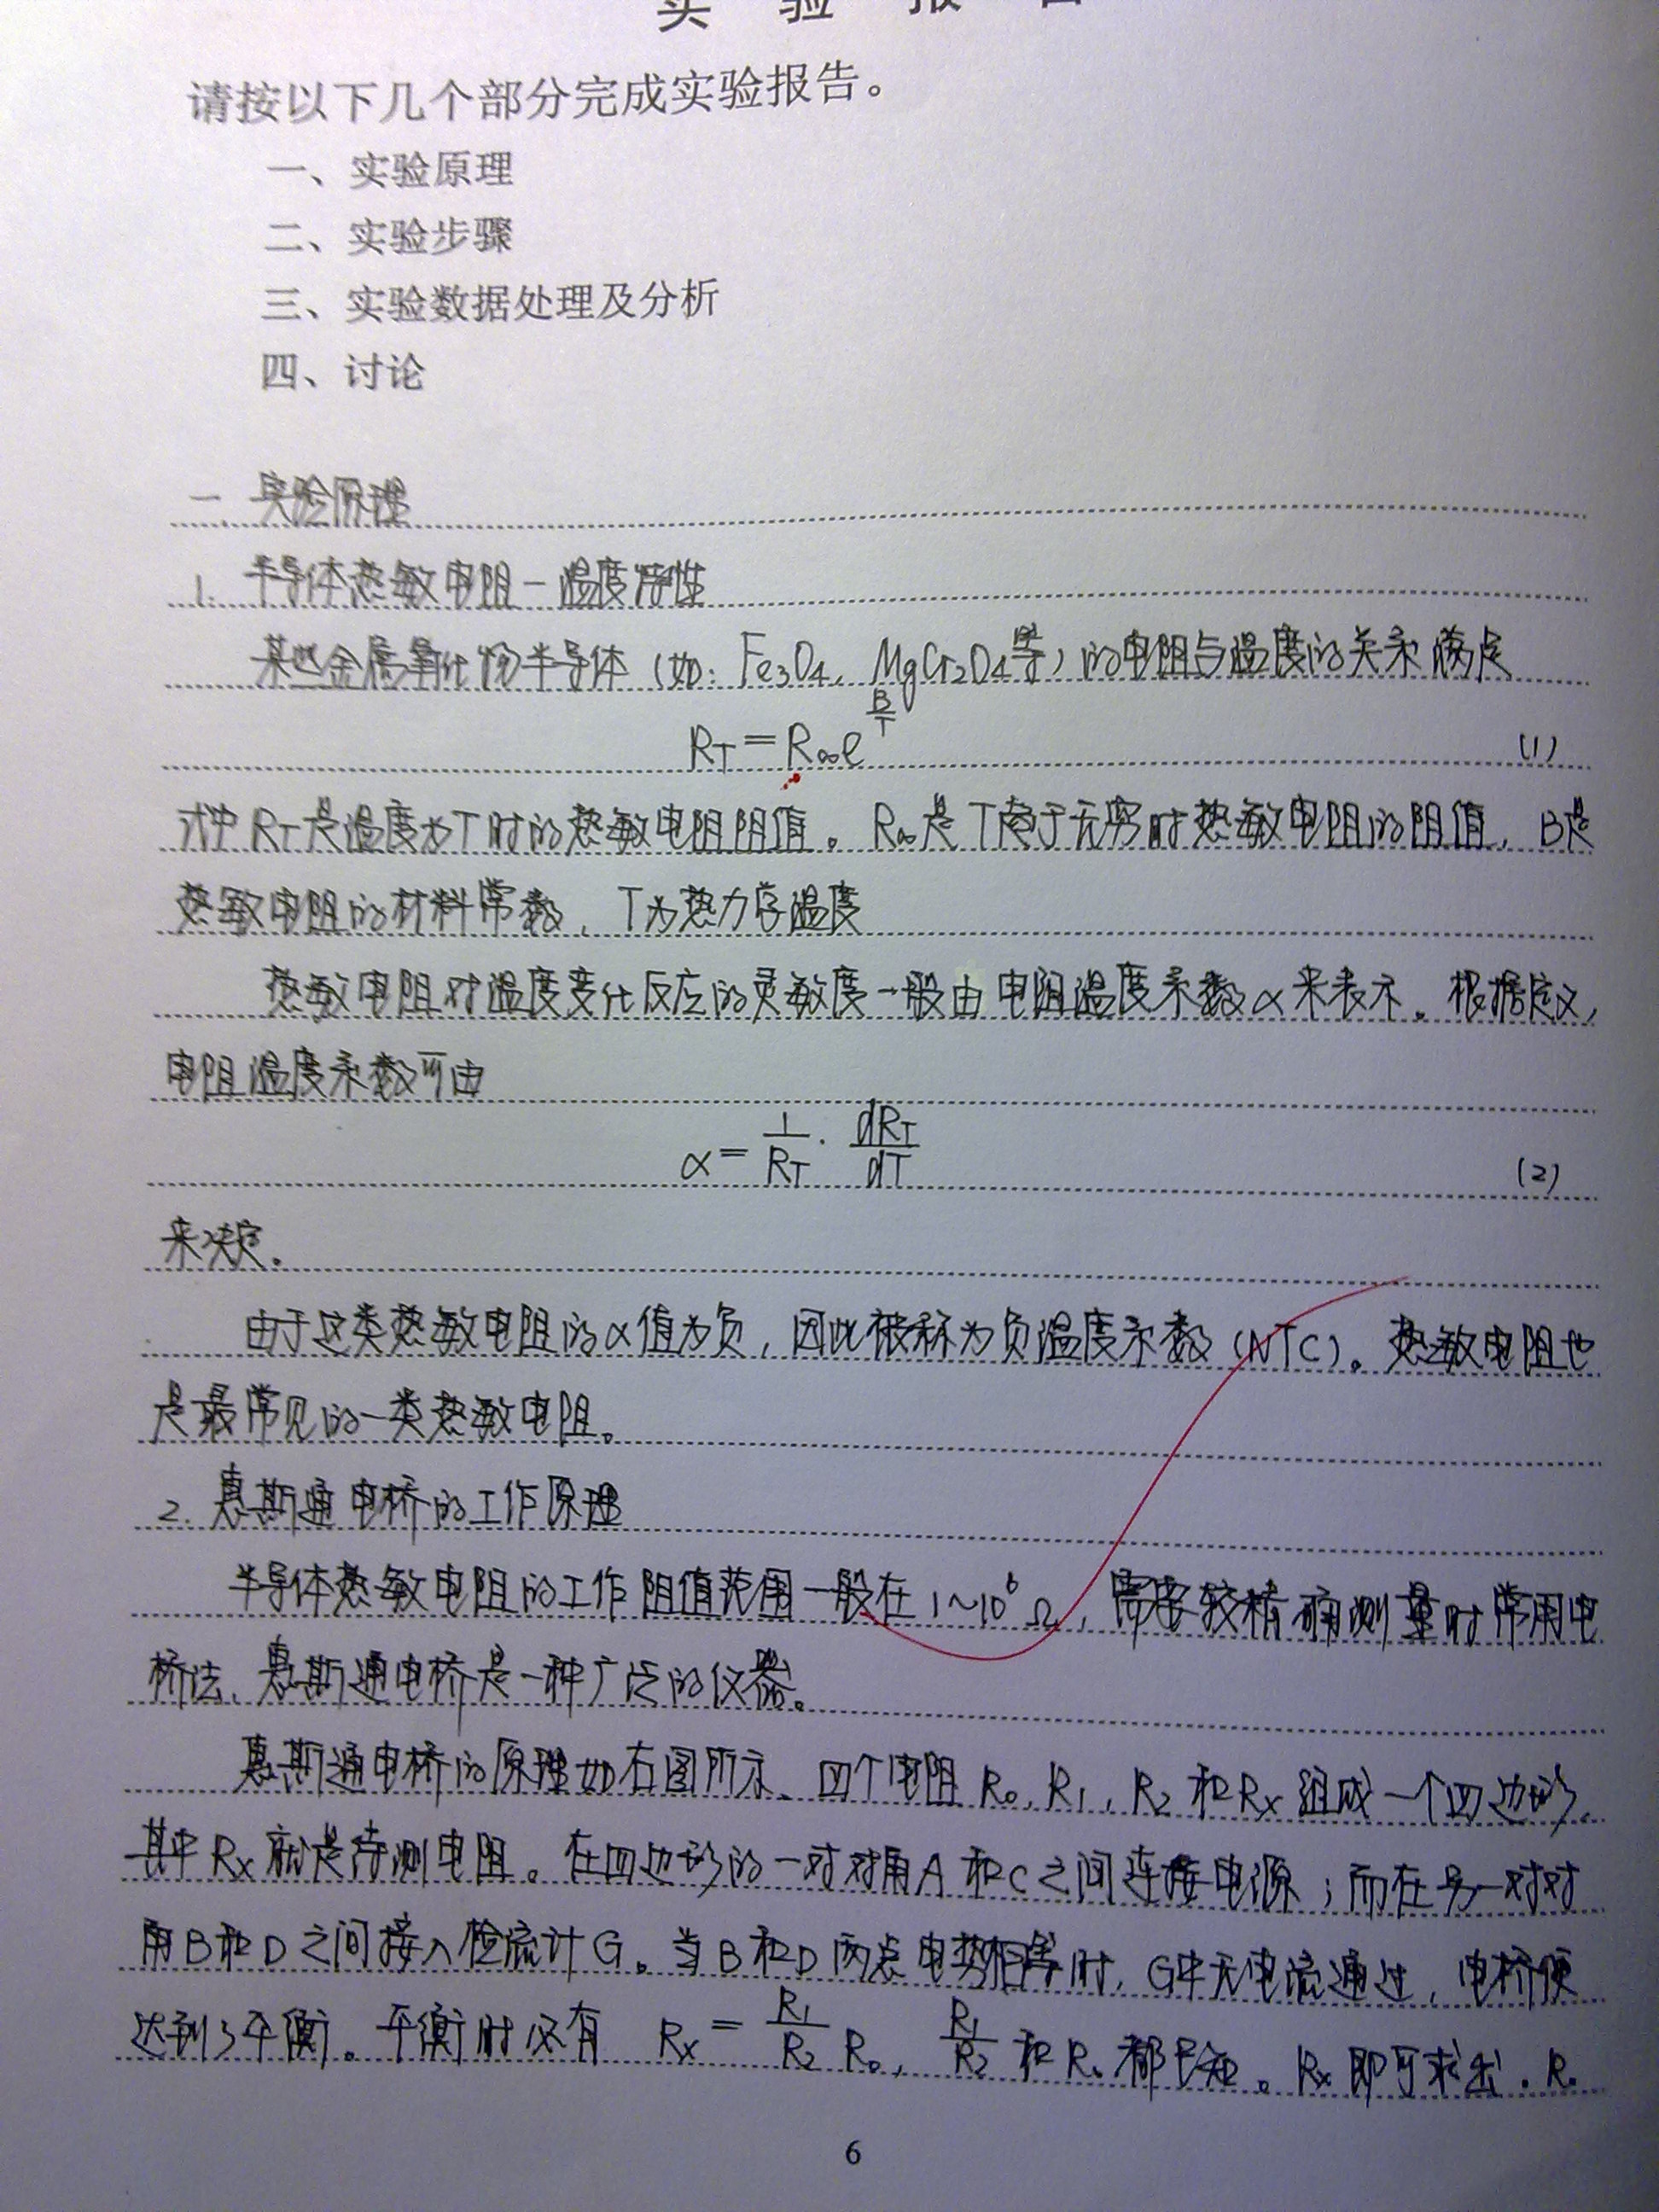 实 验 报 告
请按以下几个部分完成实验报告。
一、实验原理
二、实验步骤
三、实验数据处理及分析
四、讨论
一、实验原理
1. 半导体热敏电阻－温度特性
某些金属氧化物半导体（如：Fe₃O₄、MgCr₂O₄等）的电阻与温度的关系满足
R_T = R_∞ e^{B/T} (1)
式中 R_T 是温度为T时的热敏电阻阻值。R_∞是T趋于无穷时热敏电阻的阻值，B是
热敏电阻的材料常数，T为热力学温度
热敏电阻对温度变化反应的灵敏度一般由电阻温度系数α来表示。根据定义，
电阻温度系数可由
α = 1/R_T · dR_T/dT (2)
来决定。
由于这类热敏电阻的α值为负，因此被称为负温度系数（NTC）。热敏电阻也
是最常见的一类热敏电阻。
2. 惠斯通电桥的工作原理
半导体热敏电阻的工作阻值范围一般在1~10⁶Ω，需要较精确测量时常用电
桥法、惠斯通电桥是一种广泛的仪器。
惠斯通电桥的原理如右图所示、四个电阻 R₀, R₁, R₂ 和 Rx 组成一个四边形，
其中 Rx 就是待测电阻。在四边形的一对对角A和C之间连接电源；而在另一对对
角B和D之间接入检流计G。当B和D两点电势相等时，G中无电流通过，电桥便
达到了平衡。平衡时必有 Rx = R₁/R₂ R₀, R₁/R₂ 和 R₀ 都已知。Rx 即可求出．R₀
6